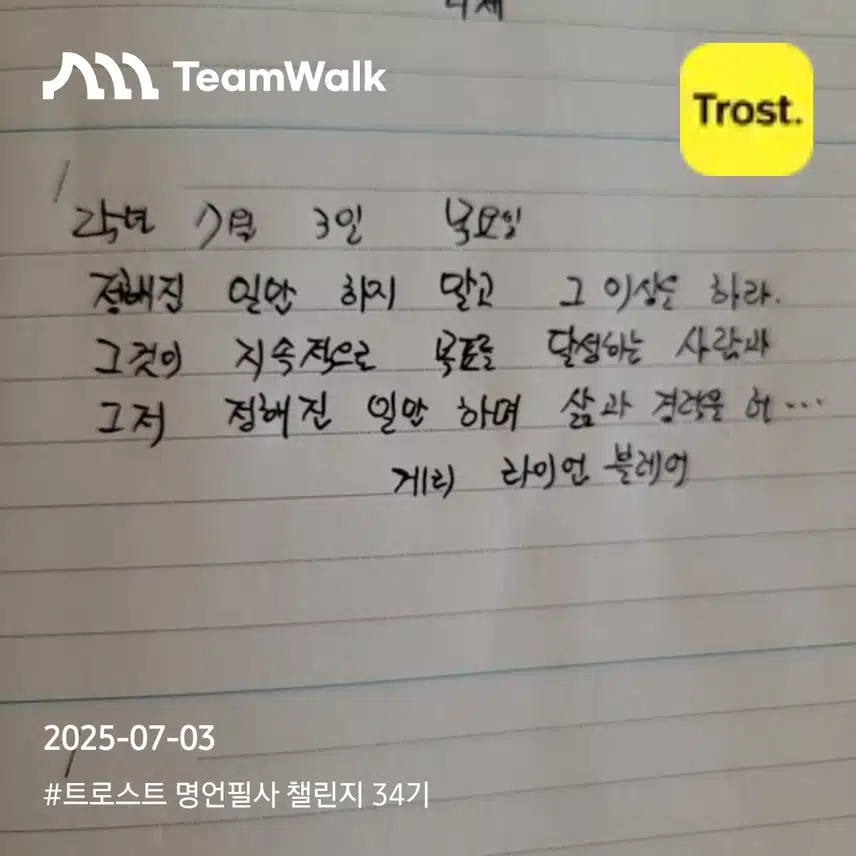 TeamWalk
Trost.
25년 7월 3일 목요일
정해진 일만 하지 말고 그 이상을 하라.
그것이 지속적으로 목표를 달성하는 사람과
그저 정해진 일만 하며 삶과 경력을 허…
게리 라이언 블레어
2025-07-03
#트로스트 명언필사 챌린지 34기